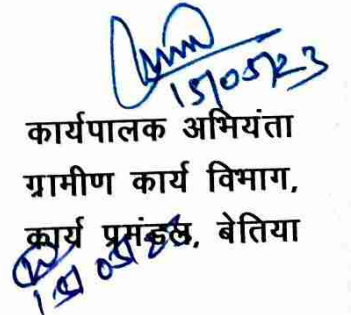 15/05/23
कार्यपालक अभियंता
ग्रामीण कार्य विभाग,
कार्य प्रमंडल, बेतिया